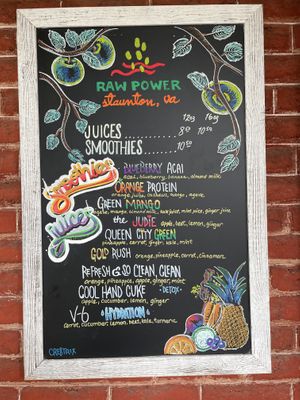 RAW POWER
staunton, va
12oz 16oz
JUICES............ 8⁰⁰ 10⁰⁰
SMOOTHIES.......... 10⁰⁰
Smoothies
BLUEBERRY ACAI
acai, blueberry, banana, almond milk
ORANGE PROTEIN
orange juice, cashews, mango, agave
GREEN MANGO
mango, almond milk, mint
Juices
the JUDIE
apple, beet, lemon, ginger
QUEEN CITY GREEN
pineapple, carrot, ginger, kale, mint
GOLD RUSH
orange, pineapple, carrot, cinnamon
REFRESH & SO CLEAN, CLEAN
orange, pineapple, apple, ginger, mint
COOL HAND CUKE -DETOX-
apple, cucumber, lemon, ginger
V-6 *HYDRATION*
carrot, cucumber, lemon, beet, kale, turmeric
CRE8TRIX